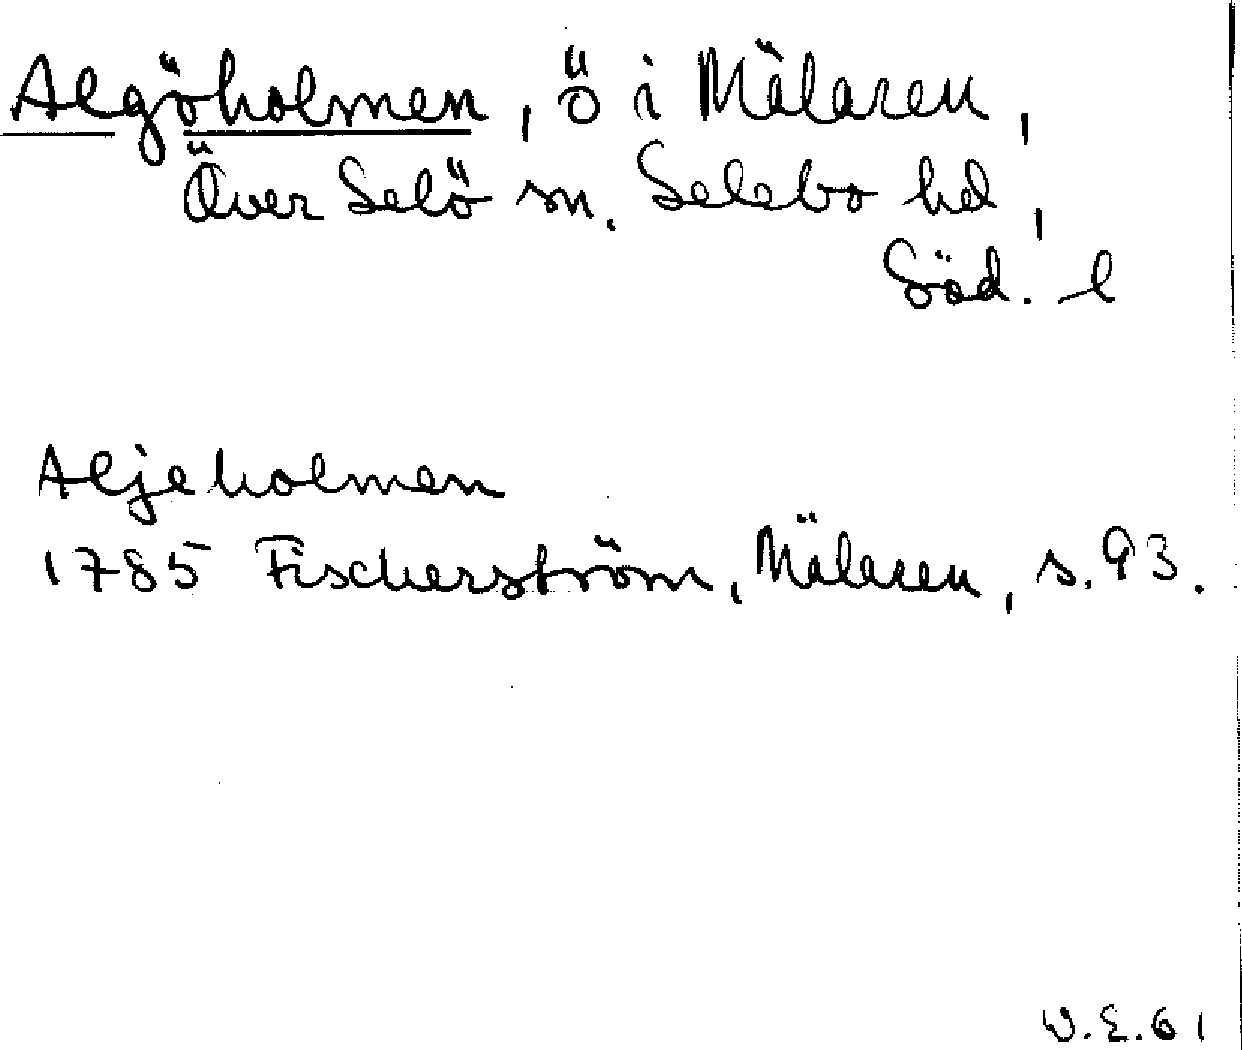 Algöholmen, ö i Mälaren,
Över Selö sn. Selebo hd,
Söd. l
Aljeholmen
1785 Fischerström, Mälaren, s. 93.
V.E.61